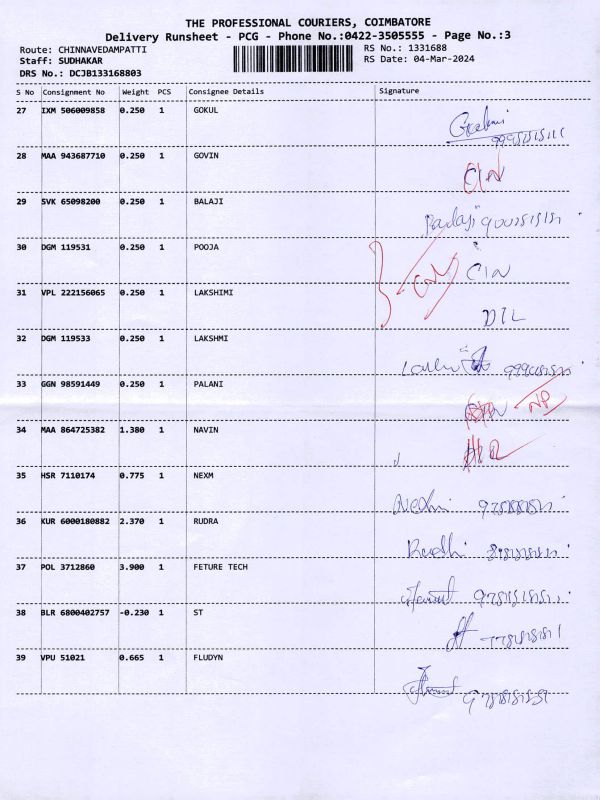 THE PROFESSIONAL COURIERS, COIMBATORE
Delivery Runsheet - PCG - Phone No.:0422-3505555 - Page No.:3
Route: CHINNAVEDAMPATTI RS No.: 1331688
Staff: SUDHAKAR RS Date: 04-Mar-2024
DRS No.: DCJB133168803
S No Consignment No Weight PCS Consignee Details Signature
27 IXM 506009858 0.250 1 GOKUL
28 MAA 943687710 0.250 1 GOVIN
CIN
29 SVK 65098200 0.250 1 BALAJI
Balaji
30 DGM 119531 0.250 1 POOJA
CIN
31 VPL 222156065 0.250 1 LAKSHIMI
DTL
32 DGM 119533 0.250 1 LAKSHMI
33 GGN 98591449 0.250 1 PALANI
NP
34 MAA 864725382 1.380 1 NAVIN
35 HSR 7110174 0.775 1 NEXM
36 KUR 6000180882 2.370 1 RUDRA
37 POL 3712860 3.900 1 FETURE TECH
38 BLR 6800402757 -0.230 1 ST
39 VPU 51021 0.665 1 FLUDYN